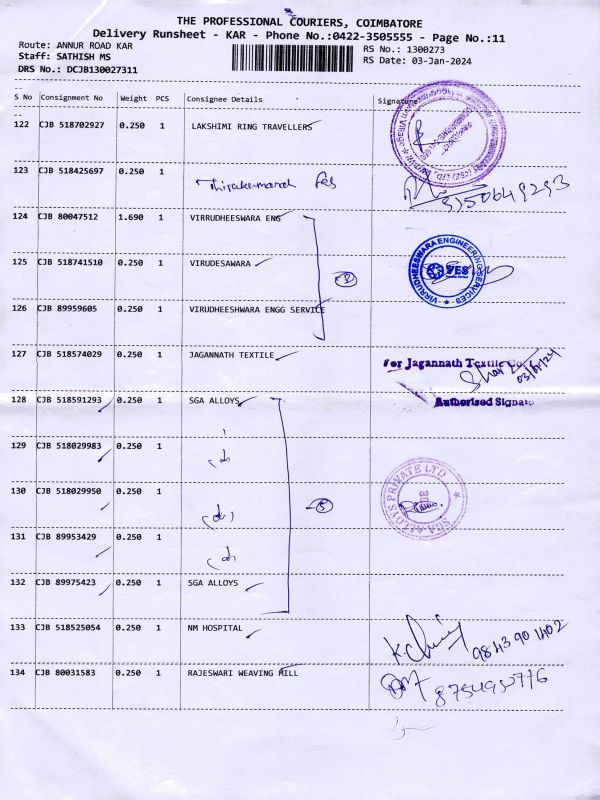 THE PROFESSIONAL COURIERS, COIMBATORE
Delivery Runsheet - KAR - Phone No.:0422-3505555 - Page No.:11
Route: ANNUR ROAD KAR
RS No.: 1300273
Staff: SATHISH MS
RS Date: 03-Jan-2024
DRS No.: DCJB130027311
S No Consignment No Weight PCS Consignee Details Signature
122 CJB 518702927 0.250 1 LAKSHIMI RING TRAVELLERS
123 CJB 518425697 0.250 1
124 CJB 80047512 1.690 1 VIRRUDHEESWARA ENG
125 CJB 518741510 0.250 1 VIRUDESAWARA
VIRRUDHEESWARA ENGINEERING SERVICES
VES
126 CJB 89959605 0.250 1 VIRUDHEESHWARA ENGG SERVICE
127 CJB 518574029 0.250 1 JAGANNATH TEXTILE
For Jagannath Textile Co.
03/01/24
128 CJB 518591293 0.250 1 SGA ALLOYS
Authorised Signato
129 CJB 518029983 0.250 1
130 CJB 518029950 0.250 1
SGA ALLOYS PRIVATE LTD
131 CJB 89953429 0.250 1
132 CJB 89975423 0.250 1 SGA ALLOYS
133 CJB 518525054 0.250 1 NM HOSPITAL
9843901402
134 CJB 80031583 0.250 1 RAJESWARI WEAVING MILL